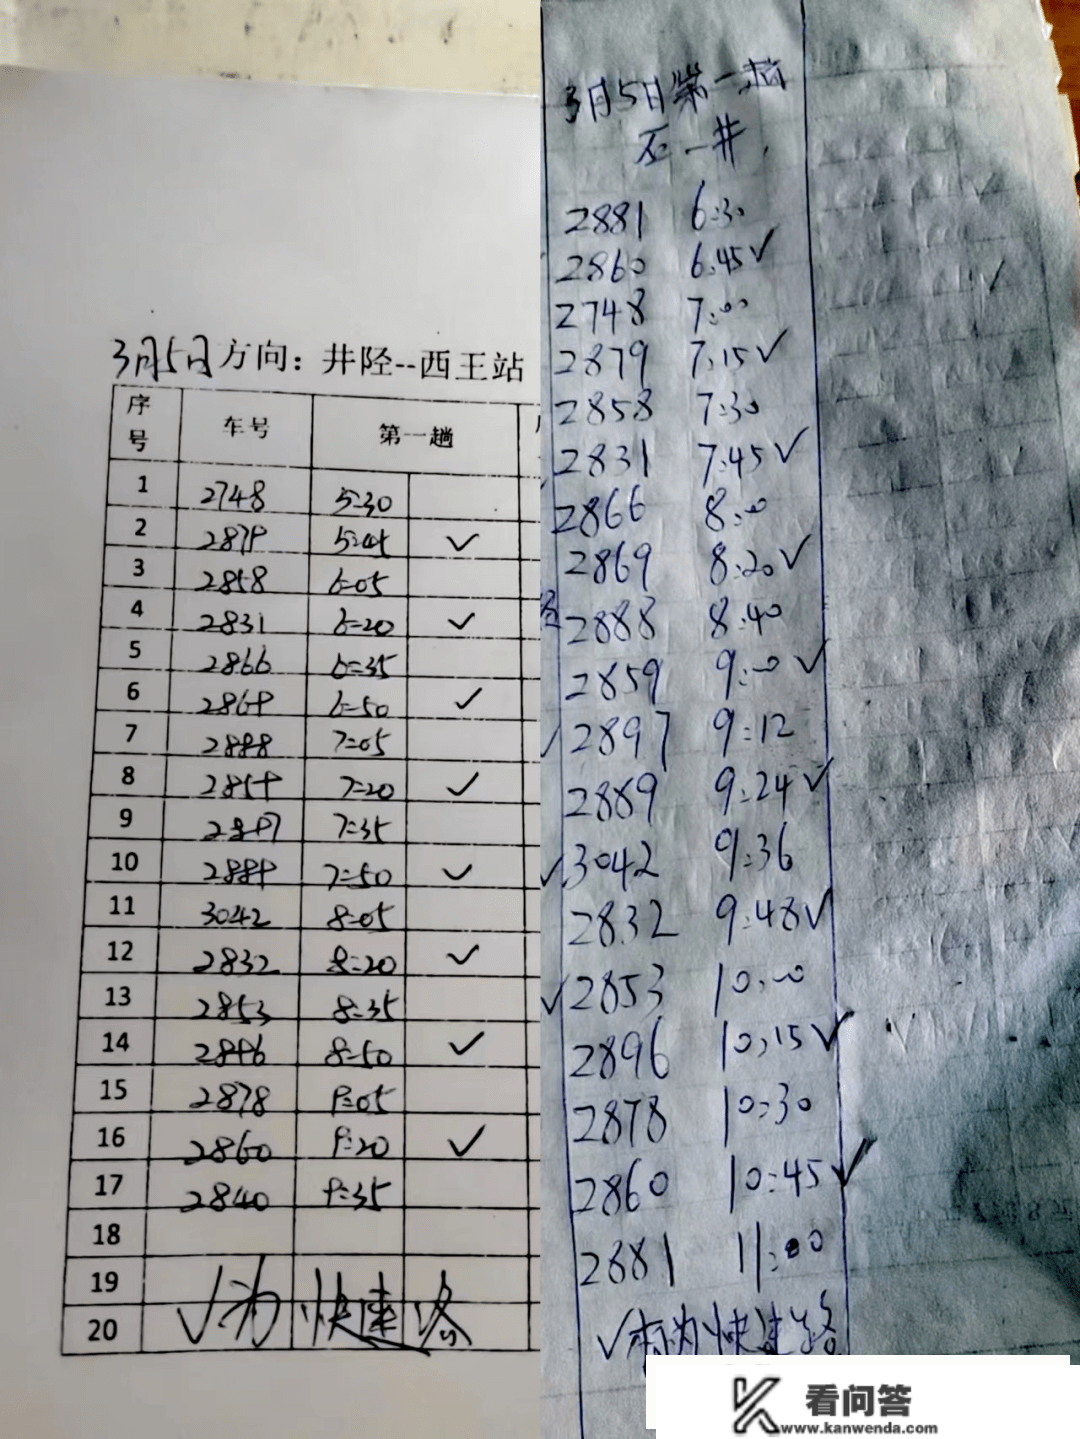 3月5日方向：井陉--西王站
序号 车号 第一趟
1 2748 5=30
2 2879 5=45 ✓
3 2858 6=05
4 2831 6=20 ✓
5 2866 6=35
6 2869 6=50 ✓
7 2888 7=05
8 2859 7=20 ✓
9 2897 7=35
10 2889 7=50 ✓
11 3042 8=05
12 2832 8=20 ✓
13 2853 8=35
14 2896 8=50 ✓
15 2878 9=05
16 2860 9=20 ✓
17 2840 9=35
18
19
20
✓为快速路
3月5日第一趟
石--井
2881 6:30
2860 6:45 ✓
2748 7:00
2879 7:15 ✓
2858 7:30
2831 7:45 ✓
2866 8:00
2869 8:20 ✓
2888 8:40
2859 9:00 ✓
✓ 2897 9:12
2889 9:24 ✓
✓ 3042 9:36
2832 9:48 ✓
✓ 2853 10:00
2896 10:15 ✓
2878 10:30
2860 10:45 ✓
2881 11:00
✓标为快速路
看问答
www.kanwenda.com